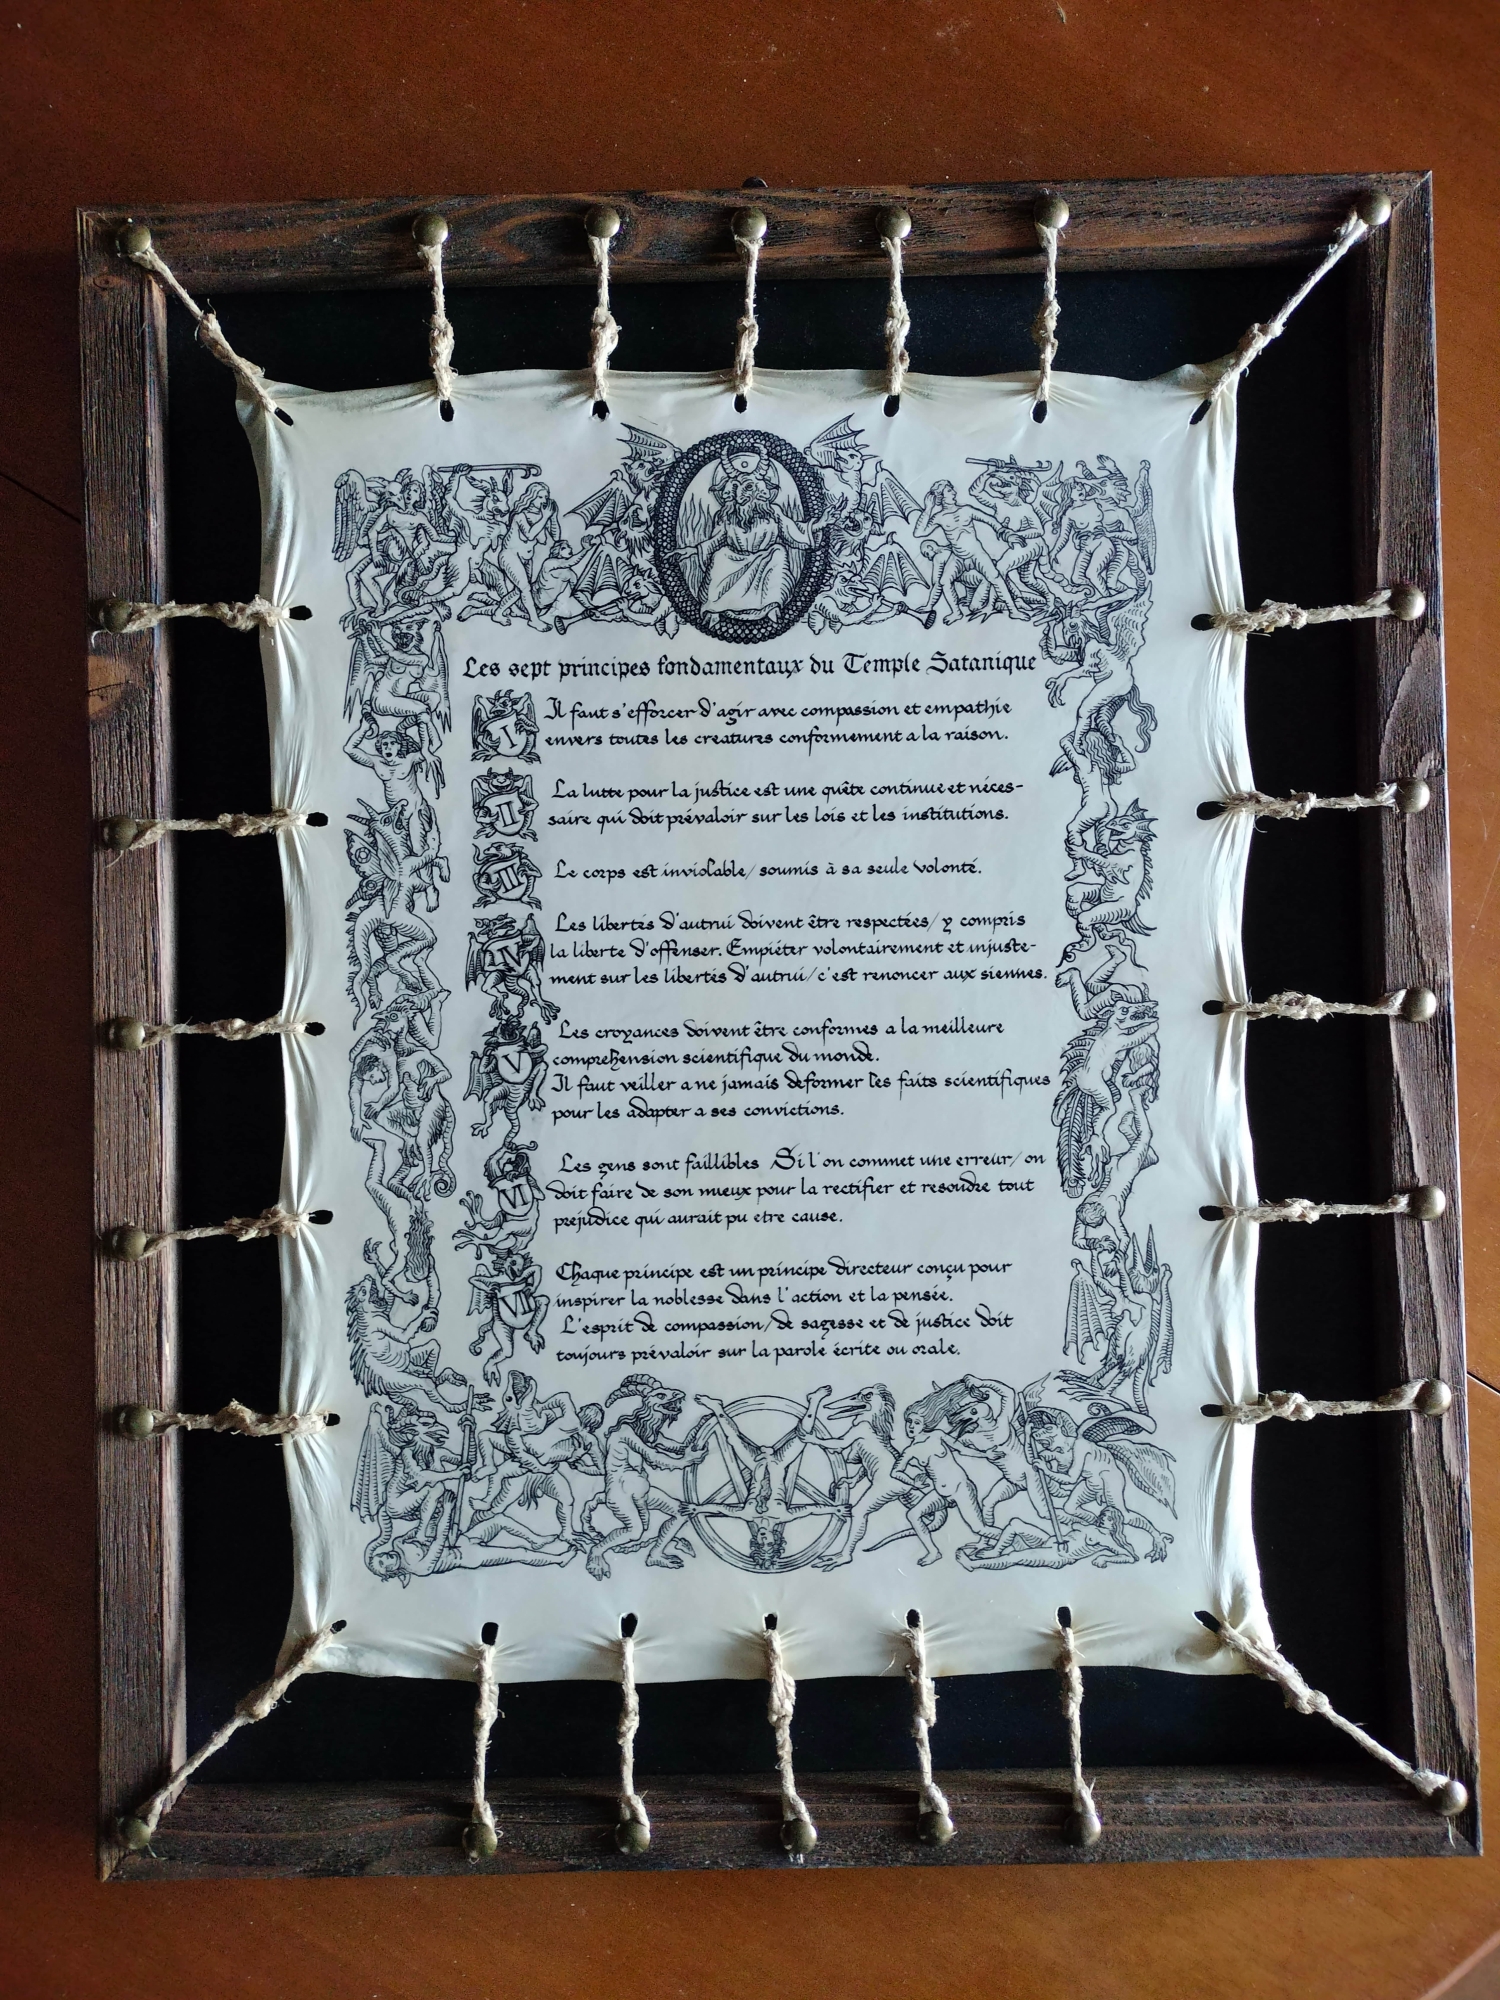 Les sept principes fondamentaux du Temple Satanique
I
Il faut s'efforcer d'agir avec compassion et empathie
envers toutes les creatures conformement a la raison.
II
La lutte pour la justice est une quête continue et néces-
saire qui doit prévaloir sur les lois et les institutions.
III
Le corps est inviolable/ soumis à sa seule volonté.
IV
Les libertés d'autrui doivent être respectées/ y compris
la liberte d'offenser. Empiéter volontairement et injuste-
ment sur les libertés d'autrui/ c'est renoncer aux siennes.
V
Les croyances doivent être conformes a la meilleure
comprehension scientifique du monde.
Il faut veiller a ne jamais deformer les faits scientifiques
pour les adapter a ses convictions.
VI
Les gens sont faillibles Si l'on commet une erreur/ on
doit faire de son mieux pour la rectifier et resoudre tout
prejudice qui aurait pu etre cause.
VII
Chaque principe est un principe directeur conçu pour
inspirer la noblesse dans l'action et la pensée.
L'esprit de compassion/ de sagesse et de justice doit
toujours prévaloir sur la parole écrite ou orale.